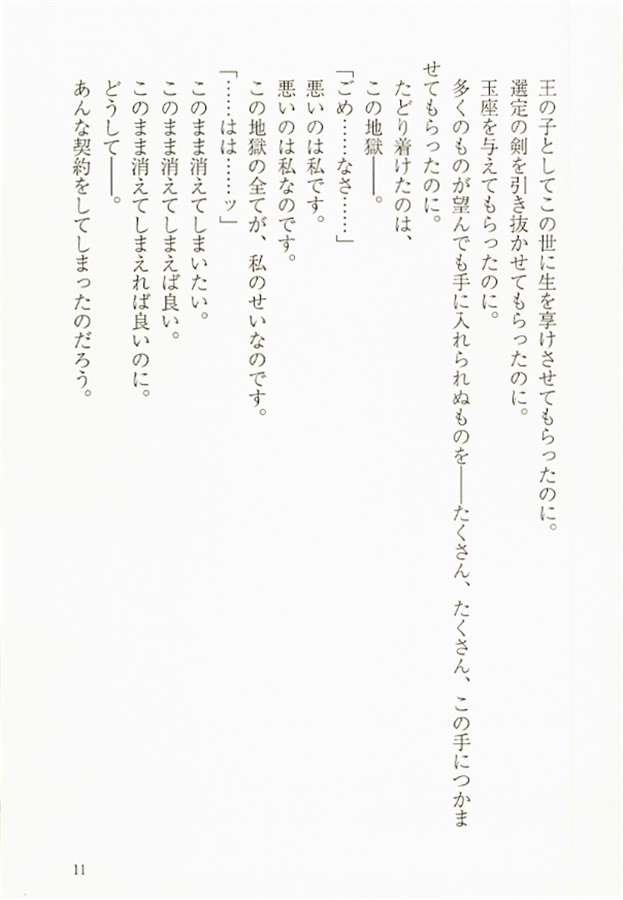 王の子としてこの世に生を享けさせてもらったのに。
選定の剣を引き抜かせてもらったのに。
玉座を与えてもらったのに。
多くのものが望んでも手に入れられぬものを――たくさん、たくさん、この手につかま
せてもらったのに。
たどり着けたのは、
この地獄――。
「ごめ……なさ……」
悪いのは私です。
悪いのは私なのです。
この地獄の全てが、私のせいなのです。
「……はは……ッ」
このまま消えてしまいたい。
このまま消えてしまえば良い。
このまま消えてしまえれば良いのに。
どうして――。
あんな契約をしてしまったのだろう。
11